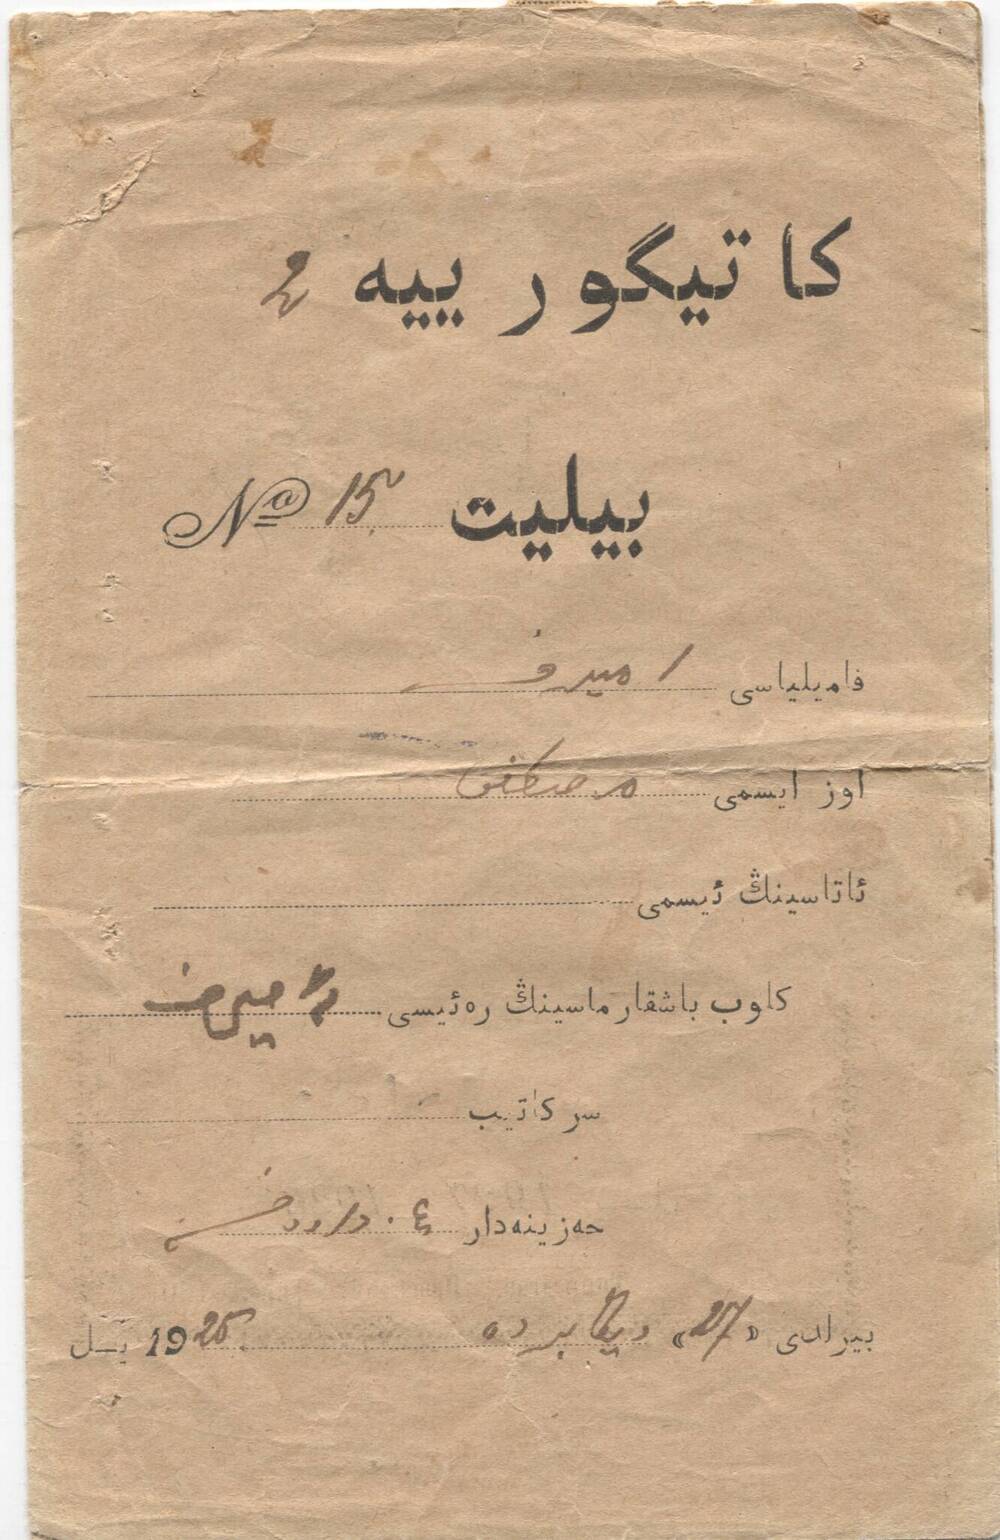 كاتيگورييه 2
بيليت № 15
فاميلياسى اميرف
اوز ايسمى م. مصطفى
ئاتاسينڭ ئيسمى
كلوب باشقارماسينڭ رەئيسى
سر كاتيب
حەزينەدار ع. داودف
بيرلدى «27» ديكابردە 1925 يـل